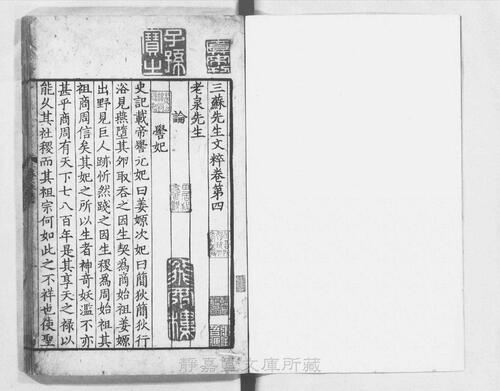 三蘇先生文粹卷第四
老泉先生
論
嚳妃
史記載帝嚳元妃曰姜嫄次妃曰簡狄簡狄行
浴見燕墮其卵取吞之因生契為商始祖姜嫄
出野見巨人跡忻然踐之因生稷為周始祖其
祖商周信矣其妃之所以生者神奇妖濫不亦
甚乎商周有天下七八百年是其享天之祿以
能久其社稷而其祖宗何如此之不祥也使聖
子孫
寶之
靜嘉堂文庫所藏